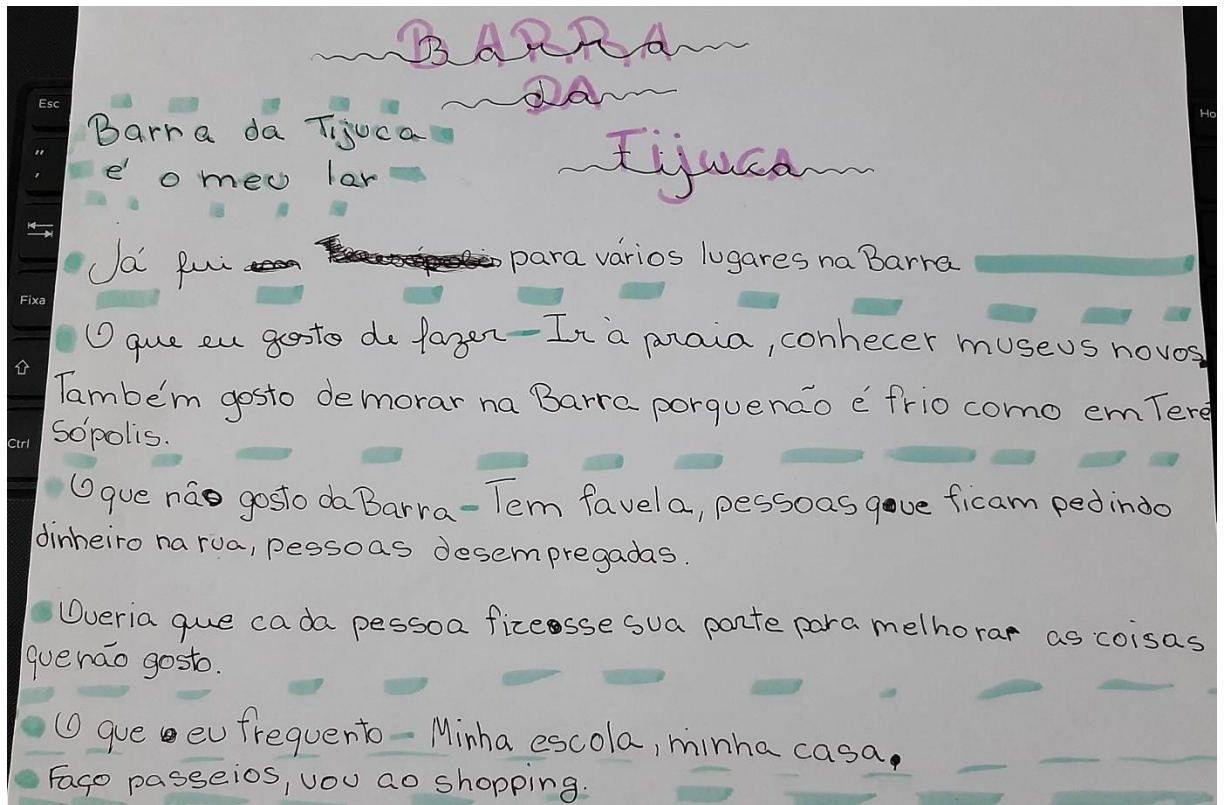 BARRA
DA
Tijuca
Barra da Tijuca
é o meu lar
Já fui para vários lugares na Barra
O que eu gosto de fazer - Ir à praia, conhecer museus novos.
Também gosto de morar na Barra porque não é frio como em Tere
sópolis.
O que não gosto da Barra - Tem favela, pessoas que ficam pedindo
dinheiro na rua, pessoas desempregadas.
Queria que cada pessoa fizesse sua parte para melhorar as coisas
que não gosto.
O que eu frequento - Minha escola, minha casa,
Faço passeios, vou ao shopping.
Esc
Fixa
Ctrl
Ho